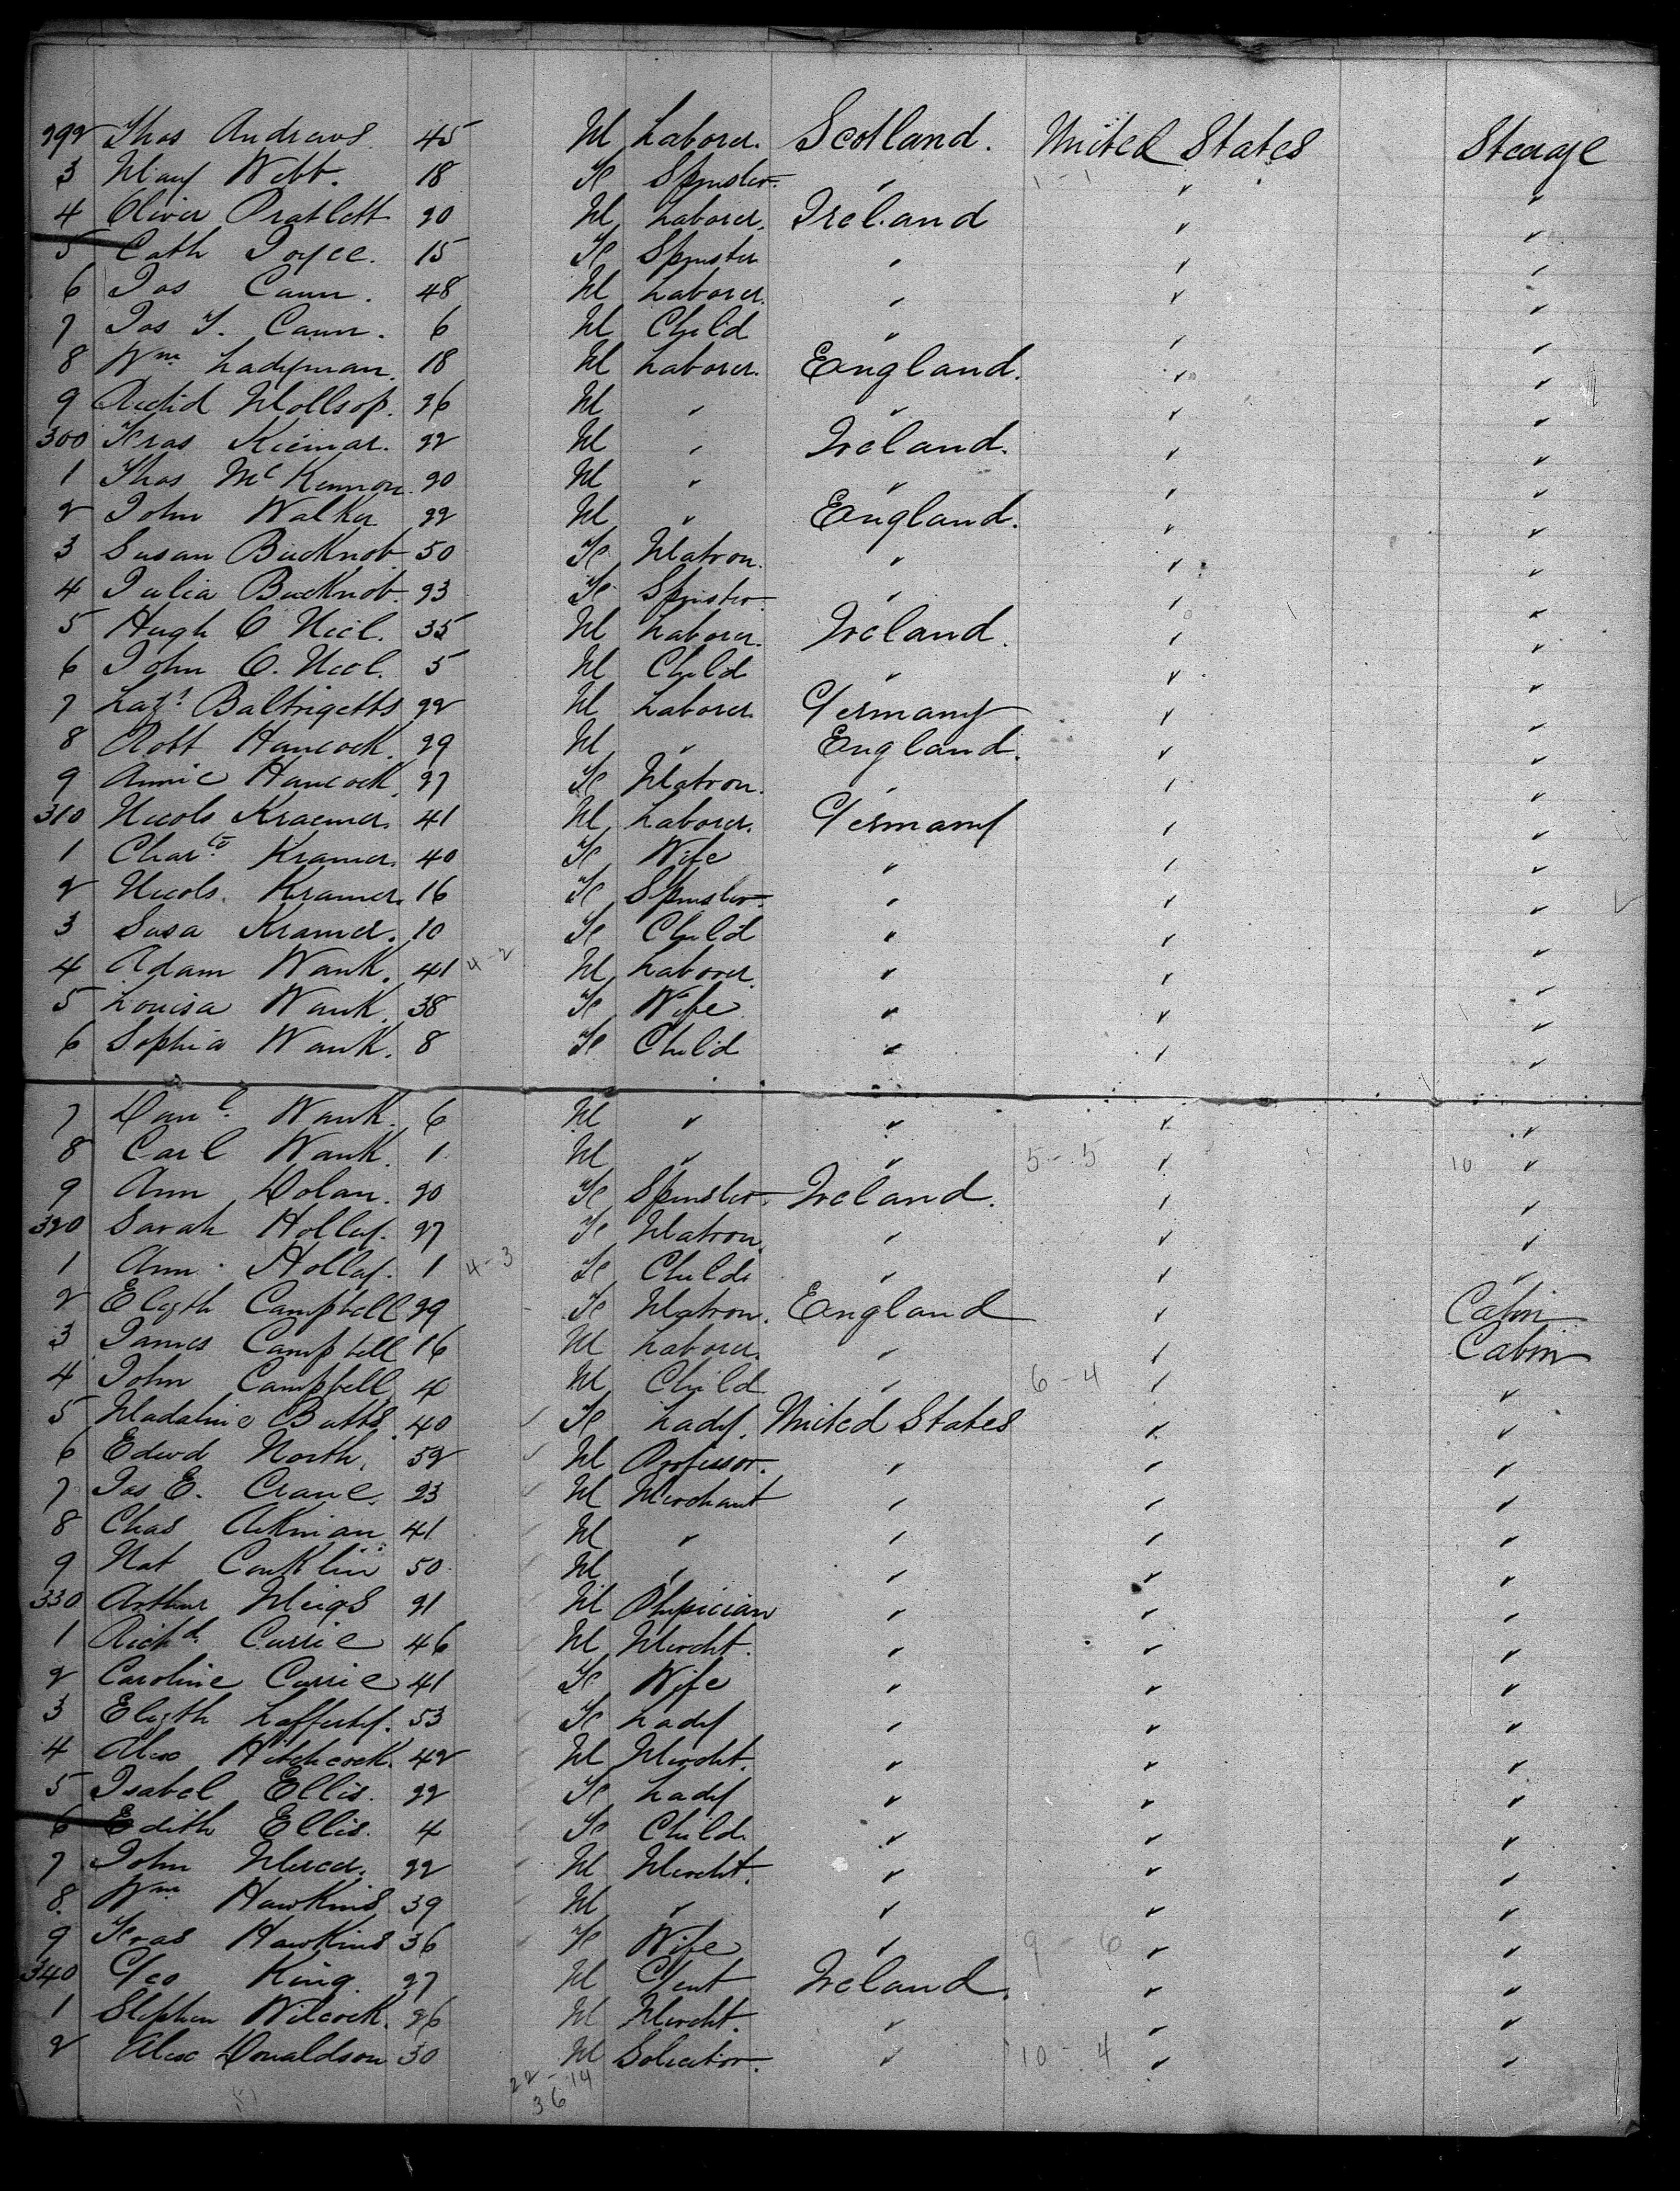 292 Thos Andrews. 45 M Laborer. Scotland. United States Steerage
3 Mary Webb. 18 Fe Spinster. " 1-1 " "
4 Oliver Pratlett 20 M Laborer. Ireland " "
5 Cath Joyce. 15 Fe Spinster " " "
6 Jas Cann. 48 M Laborer. " " "
7 Jas T. Cann. 6 M Child " " "
8 Wm Ladyman. 18 M Laborer. England. " "
9 Richd Mollsop. 26 M " " " "
300 Fras Kiernar. 22 M " Ireland. " "
1 Thos McKennon. 20 M " " " "
2 John Walker 22 M " England. " "
3 Susan Bucknob 50 Fe Matron. " " "
4 Julia Bucknob. 23 Fe Spinster. " " "
5 Hugh O Neil. 35 M Laborer. Ireland. " "
6 John O. Neil. 5 M Child " " "
7 Lazs Baltrigetts 22 M Laborer. Germany " "
8 Robt Hancock. 29 M " England. " "
9 Annie Hancock. 27 Fe Matron. " " "
310 Nicols Kraemer. 41 M Laborer. Germany " "
1 Charte Kramer. 40 Fe Wife " " "
2 Nicols. Kramer. 16 Fe Spinster. " " "
3 Susa Kramer. 10 Fe Child " " "
4 Adam Wank. 41 4-2 M Laborer. " " "
5 Louisa Wank. 38 Fe Wife " " "
6 Sophia Wank. 8 Fe Child " " "
7 Danl Wank. 6 M " " " "
8 Carl Wank. 1 M " " 5-5 " 10 "
9 Ann Dolan. 20 Fe Spinster. Ireland. " "
320 Sarah Hollay. 27 Fe Matron. " " "
1 Ann Hollay. 1 4-3 Fe Child " " "
2 Elizth Campbell 29 Fe Matron. England " Cabin
3 James Campbell 16 M Laborer. " " Cabin
4 John Campbell 4 M Child " 6-4 " "
5 Madaline Butts. 40 Fe Lady. United States " "
6 Edwd North. 52 M Professor. " " "
7 Jas E. Crane. 23 M Merchant " " "
8 Chas Aikman 41 M " " " "
9 Nat Conklin 50 M " " " "
330 Arthur Meigs 21 M Physician " " "
1 Richd Currie 46 M Mercht. " " "
2 Caroline Currie 41 Fe Wife " " "
3 Elizth Lafferty. 53 Fe Lady " " "
4 Alex Hitchcock. 42 M Mercht. " " "
5 Isabel Ellis. 22 Fe Lady " " "
6 Edith Ellis. 4 Fe Child " " "
7 John Mercer. 22 M Mercht. " " "
8. Wm Hawkins 39 M " " " "
9 Fras Hawkins 36 Fe Wife " 9-6 " "
340 Geo King 27 M Gent Ireland. " "
1 Stephen Wilcock. 26 M Mercht. " " "
2 Alex Donaldson 30 M Solicitor. " 10-4 " "
22-14
36